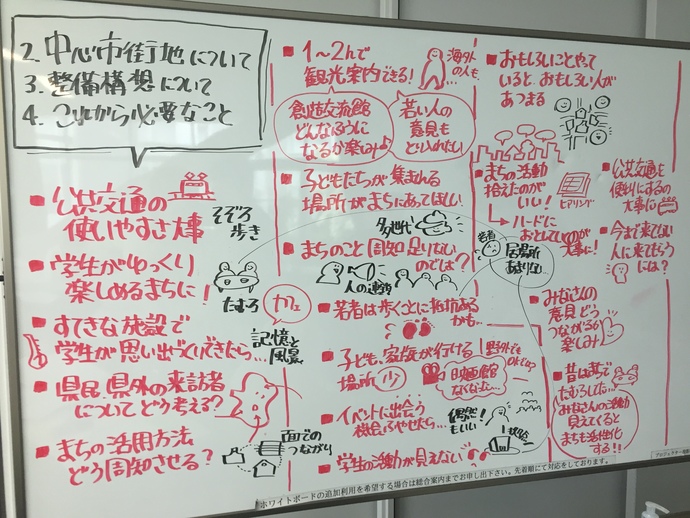 2. 中心市街地について
3. 整備構想について
4. これから必要なこと
■ 公共交通の
使いやすさ大事
そぞろ
歩き
■ 学生がゆっくり
楽しめるまちに!
たむろ
■ すてきな施設で
学生が思い出づくりできたら…
カフェ
記憶と
風景
■ 県民、県外の来訪者
についてどう考える?
■ まちの活用方法
どう周知させる?
面での
つながり
■ 1~2hで
観光案内できる!
海外
の人も…
創造交流館
どんなふうに
なるか楽しみ
若い人の
意見も
とり入れたい
■ 子どもたちが集まれる
場所がまちにあってほしい
多世代
■ まちのこと周知足りない
のでは?
人の連鎖
■ 若者は歩くことに抵抗ある
かも…
■ 子ども、家族が行ける
場所 少
野外でも
映画館
なくなった…
■ イベントに出会う
機会ふやせたら…
偶然
もいい!
■ 学生の活動が見えない
■ おもしろいことやって
いると、おもしろい人が
あつまる
■ まちの活動
拾えたのが
いい!
ヒアリング
→ハードに
おとしていくのが
大事に!
若者
居場所
あまりない…
■ 公共交通を
便利にするの
大事に
■ 今まで来てない
人に来てもらう
には?
■ みなさんの
意見どう
つながるか
楽しみ
■ 昔は街で
たむろした…
みなさんの活動
見えてくると
まちも活性化
する!!
ホワイトボードの追加利用を希望する場合は総合案内までお申し出下さい。先着順にて対応をしております。